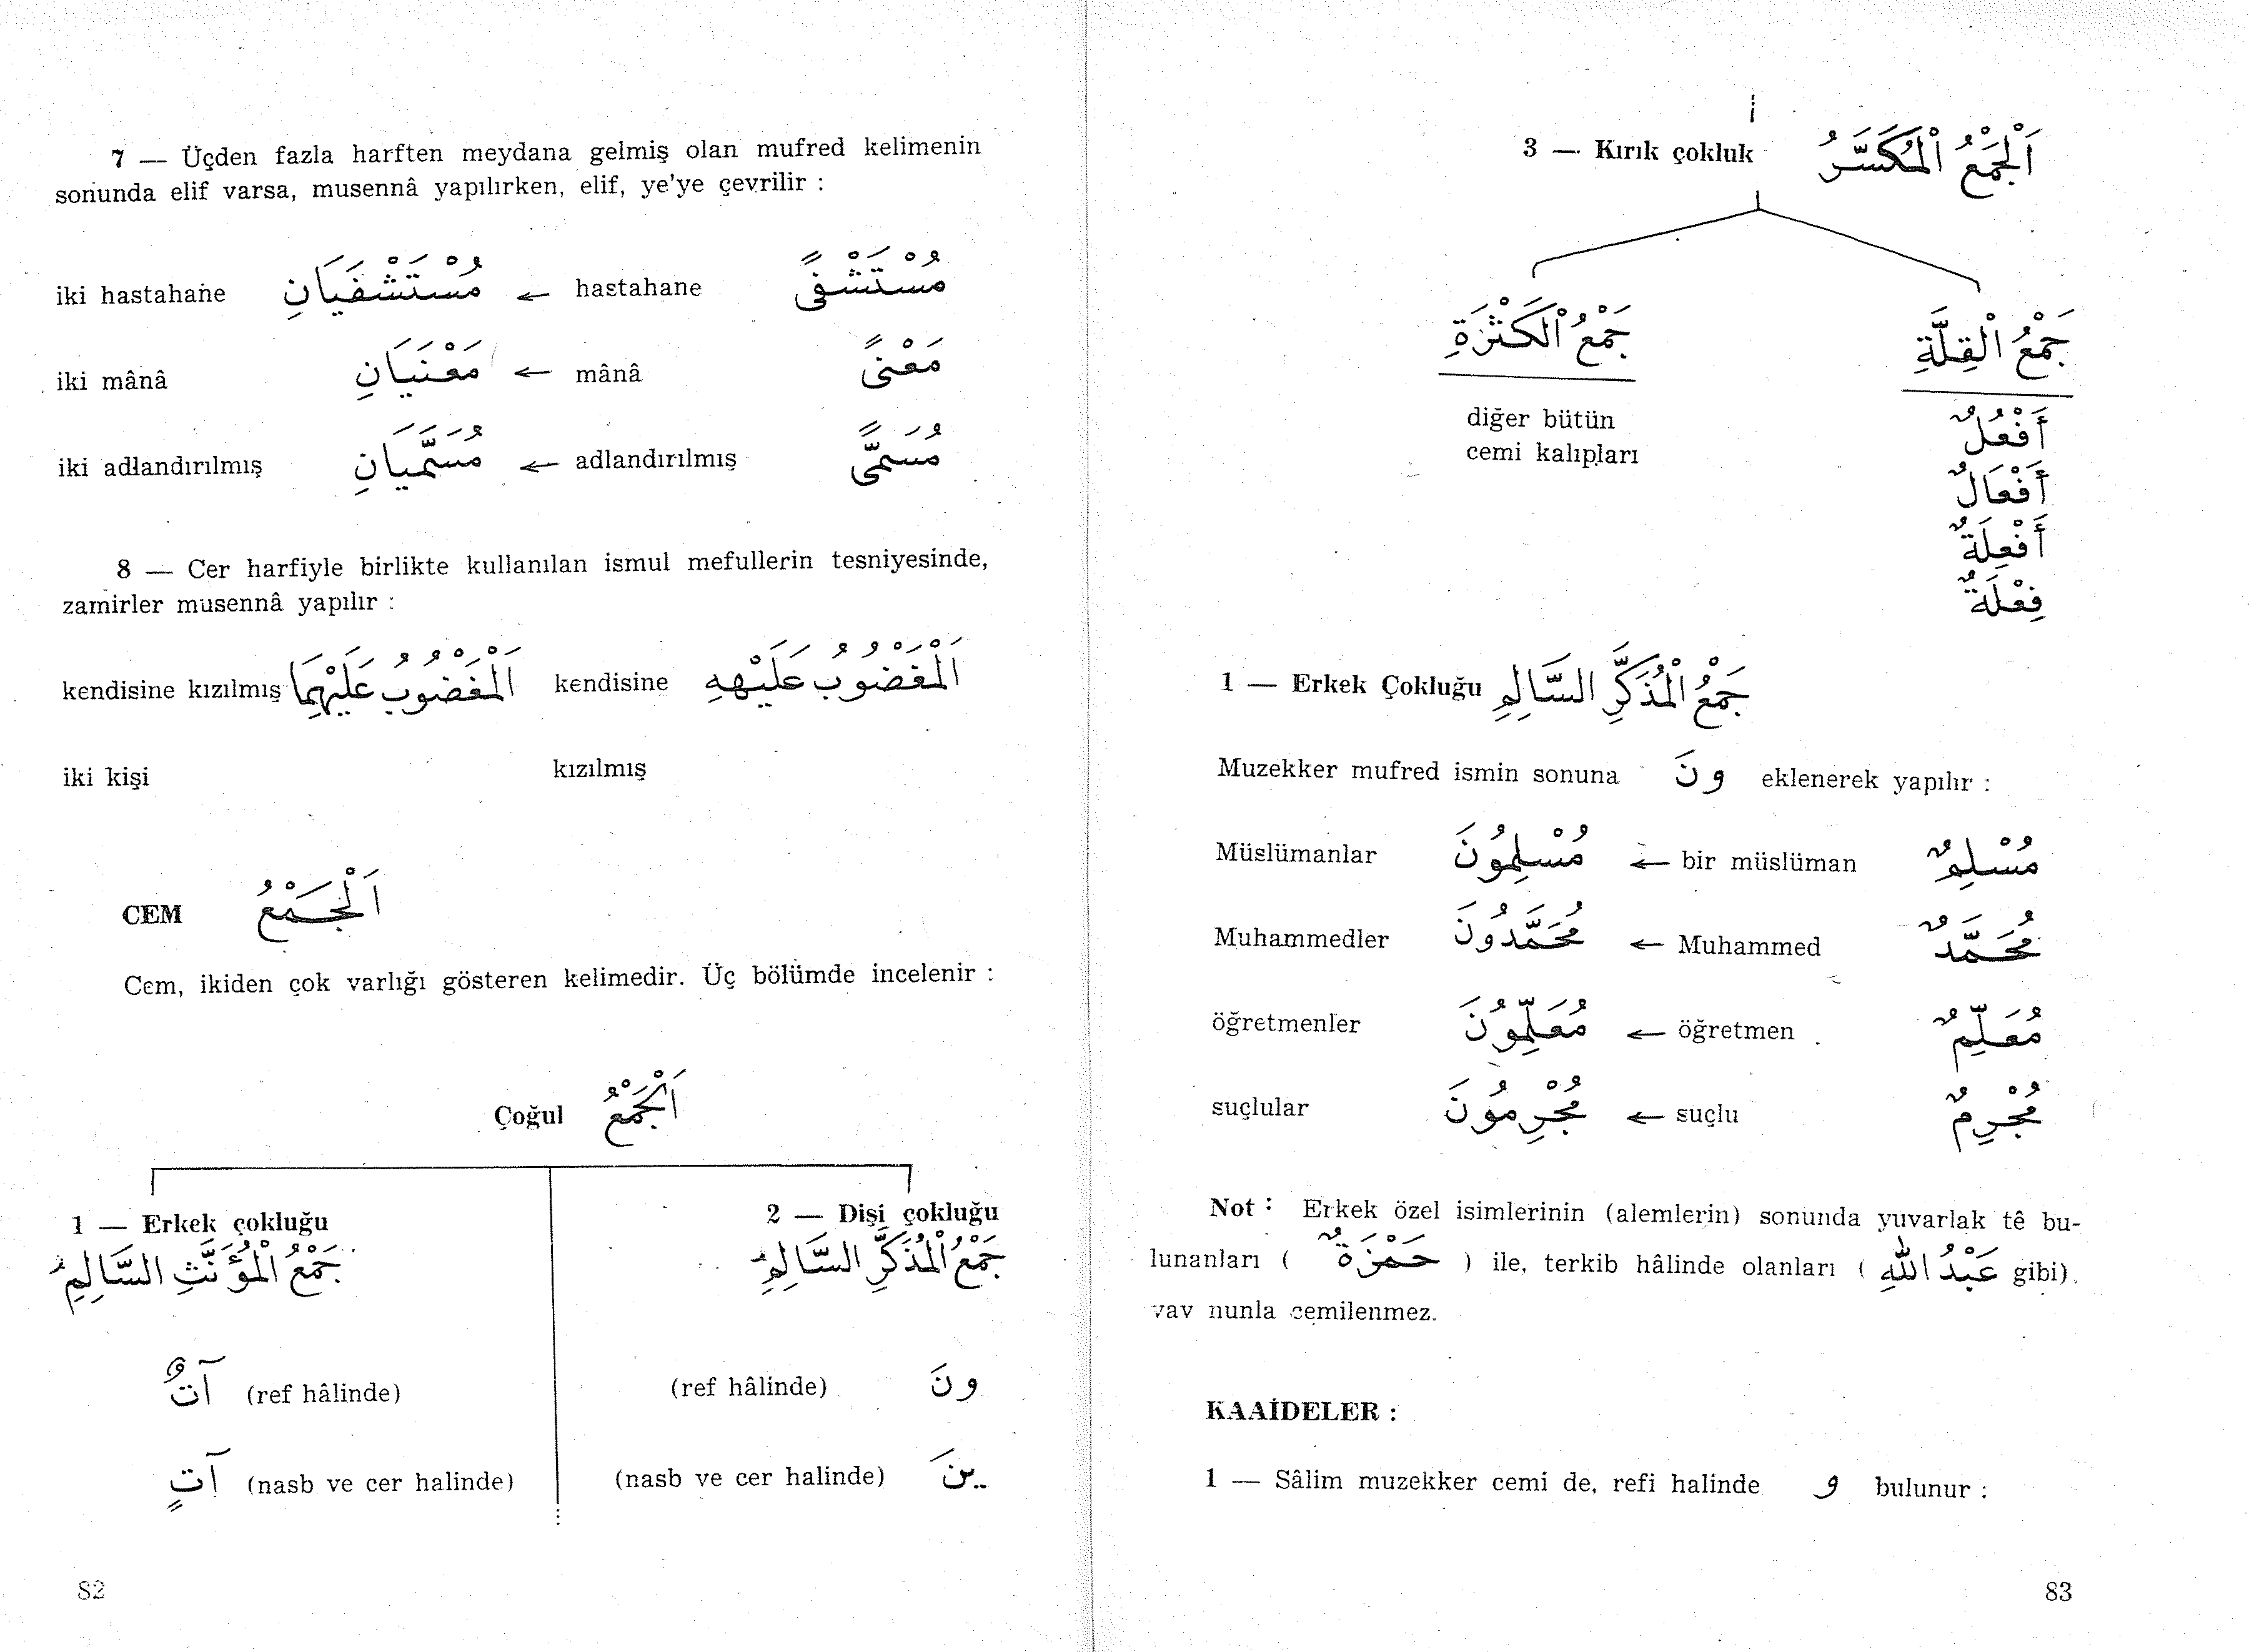 7 — Üçden fazla harften meydana gelmiş olan mufred kelimenin
sonunda elif varsa, musennâ yapılırken, elif, ye'ye çevrilir :
iki hastahane مُسْتَشْفَيَانِ ← hastahane مُسْتَشْفًى
iki mânâ مَعْنَيَانِ ← mânâ مَعْنًى
iki adlandırılmış مُسَمَّيَانِ ← adlandırılmış مُسَمًّى
8 — Cer harfiyle birlikte kullanılan ismul mefullerin tesniyesinde,
zamirler musennâ yapılır :
kendisine kızılmış اَلْمَغْضُوبُ عَلَيْهِمَا kendisine اَلْمَغْضُوبُ عَلَيْهِ
iki kişi kızılmış
CEM اَلْجَمْعُ
Cem, ikiden çok varlığı gösteren kelimedir. Üç bölümde incelenir :
Çoğul اَلْجَمْعُ
1 — Erkek çokluğu 2 — Dişi çokluğu
جَمْعُ الْمُؤَنَّثِ السَّالِمِ جَمْعُ الْمُذَكَّرِ السَّالِمِ
آتٌ (ref hâlinde) (ref hâlinde) ونَ
آتٍ (nasb ve cer halinde) (nasb ve cer halinde) ينَ
82
3 — Kırık çokluk اَلْجَمْعُ الْمُكَسَّرُ
جَمْعُ الْكَثْرَةِ جَمْعُ الْقِلَّةِ
diğer bütün
cemi kalıpları
أَفْعُلٌ
أَفْعَالٌ
أَفْعِلَةٌ
فِعْلَةٌ
1 — Erkek Çokluğu جَمْعُ الْمُذَكَّرِ السَّالِمِ
Muzekker mufred ismin sonuna ونَ eklenerek yapılır :
Müslümanlar مُسْلِمُونَ ← bir müslüman مُسْلِمٌ
Muhammedler مُحَمَّدُونَ ← Muhammed مُحَمَّدٌ
öğretmenler مُعَلِّمُونَ ← öğretmen مُعَلِّمٌ
suçlular مُجْرِمُونَ ← suçlu مُجْرِمٌ
Not : Erkek özel isimlerinin (alemlerin) sonunda yuvarlak tê bu-
lunanları ( حَمْزَةٌ ) ile, terkib hâlinde olanları ( عَبْدُ اللهِ gibi)
vav nunla cemilenmez.
KAAİDELER :
1 — Sâlim muzekker cemi de, refi halinde و bulunur :
83